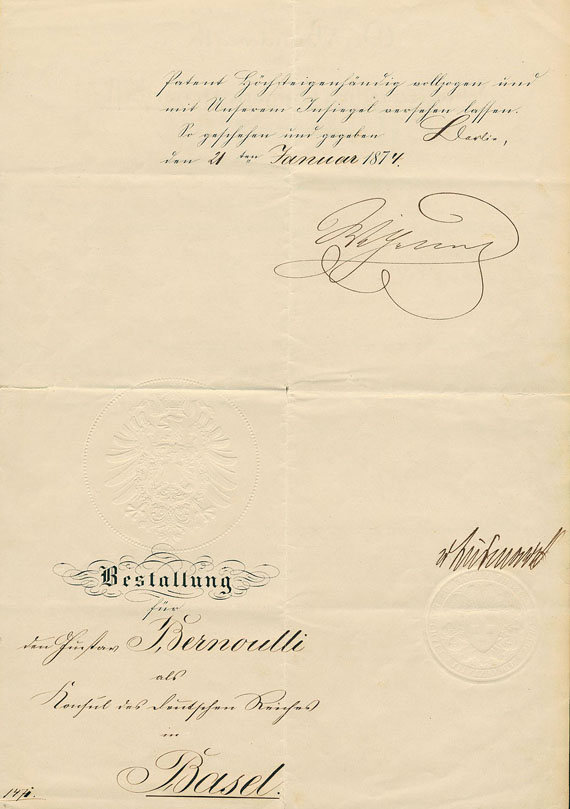 Patent Höchsteigenhändig vollzogen und
mit Unserem Insiegel versehen lassen.
So geschehen und gegeben Berlin,
den 21 ten Januar 1874.
Wilhelm
v Bismarck
Bestallung
für
den Gustav Bernoulli
als
Konsul des Deutschen Reiches
in
Basel.